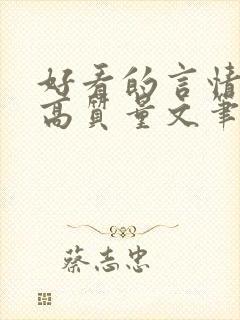 好看的言情
高质量文笔
蔡志忠